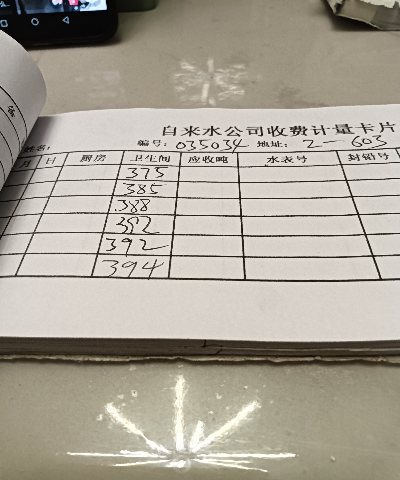 自来水公司收费计量卡片
姓名: 编号: 035034 地址: 2-603
月 日 厨房 卫生间 应收吨 水表号 封铅号
375
385
388
392
392
394